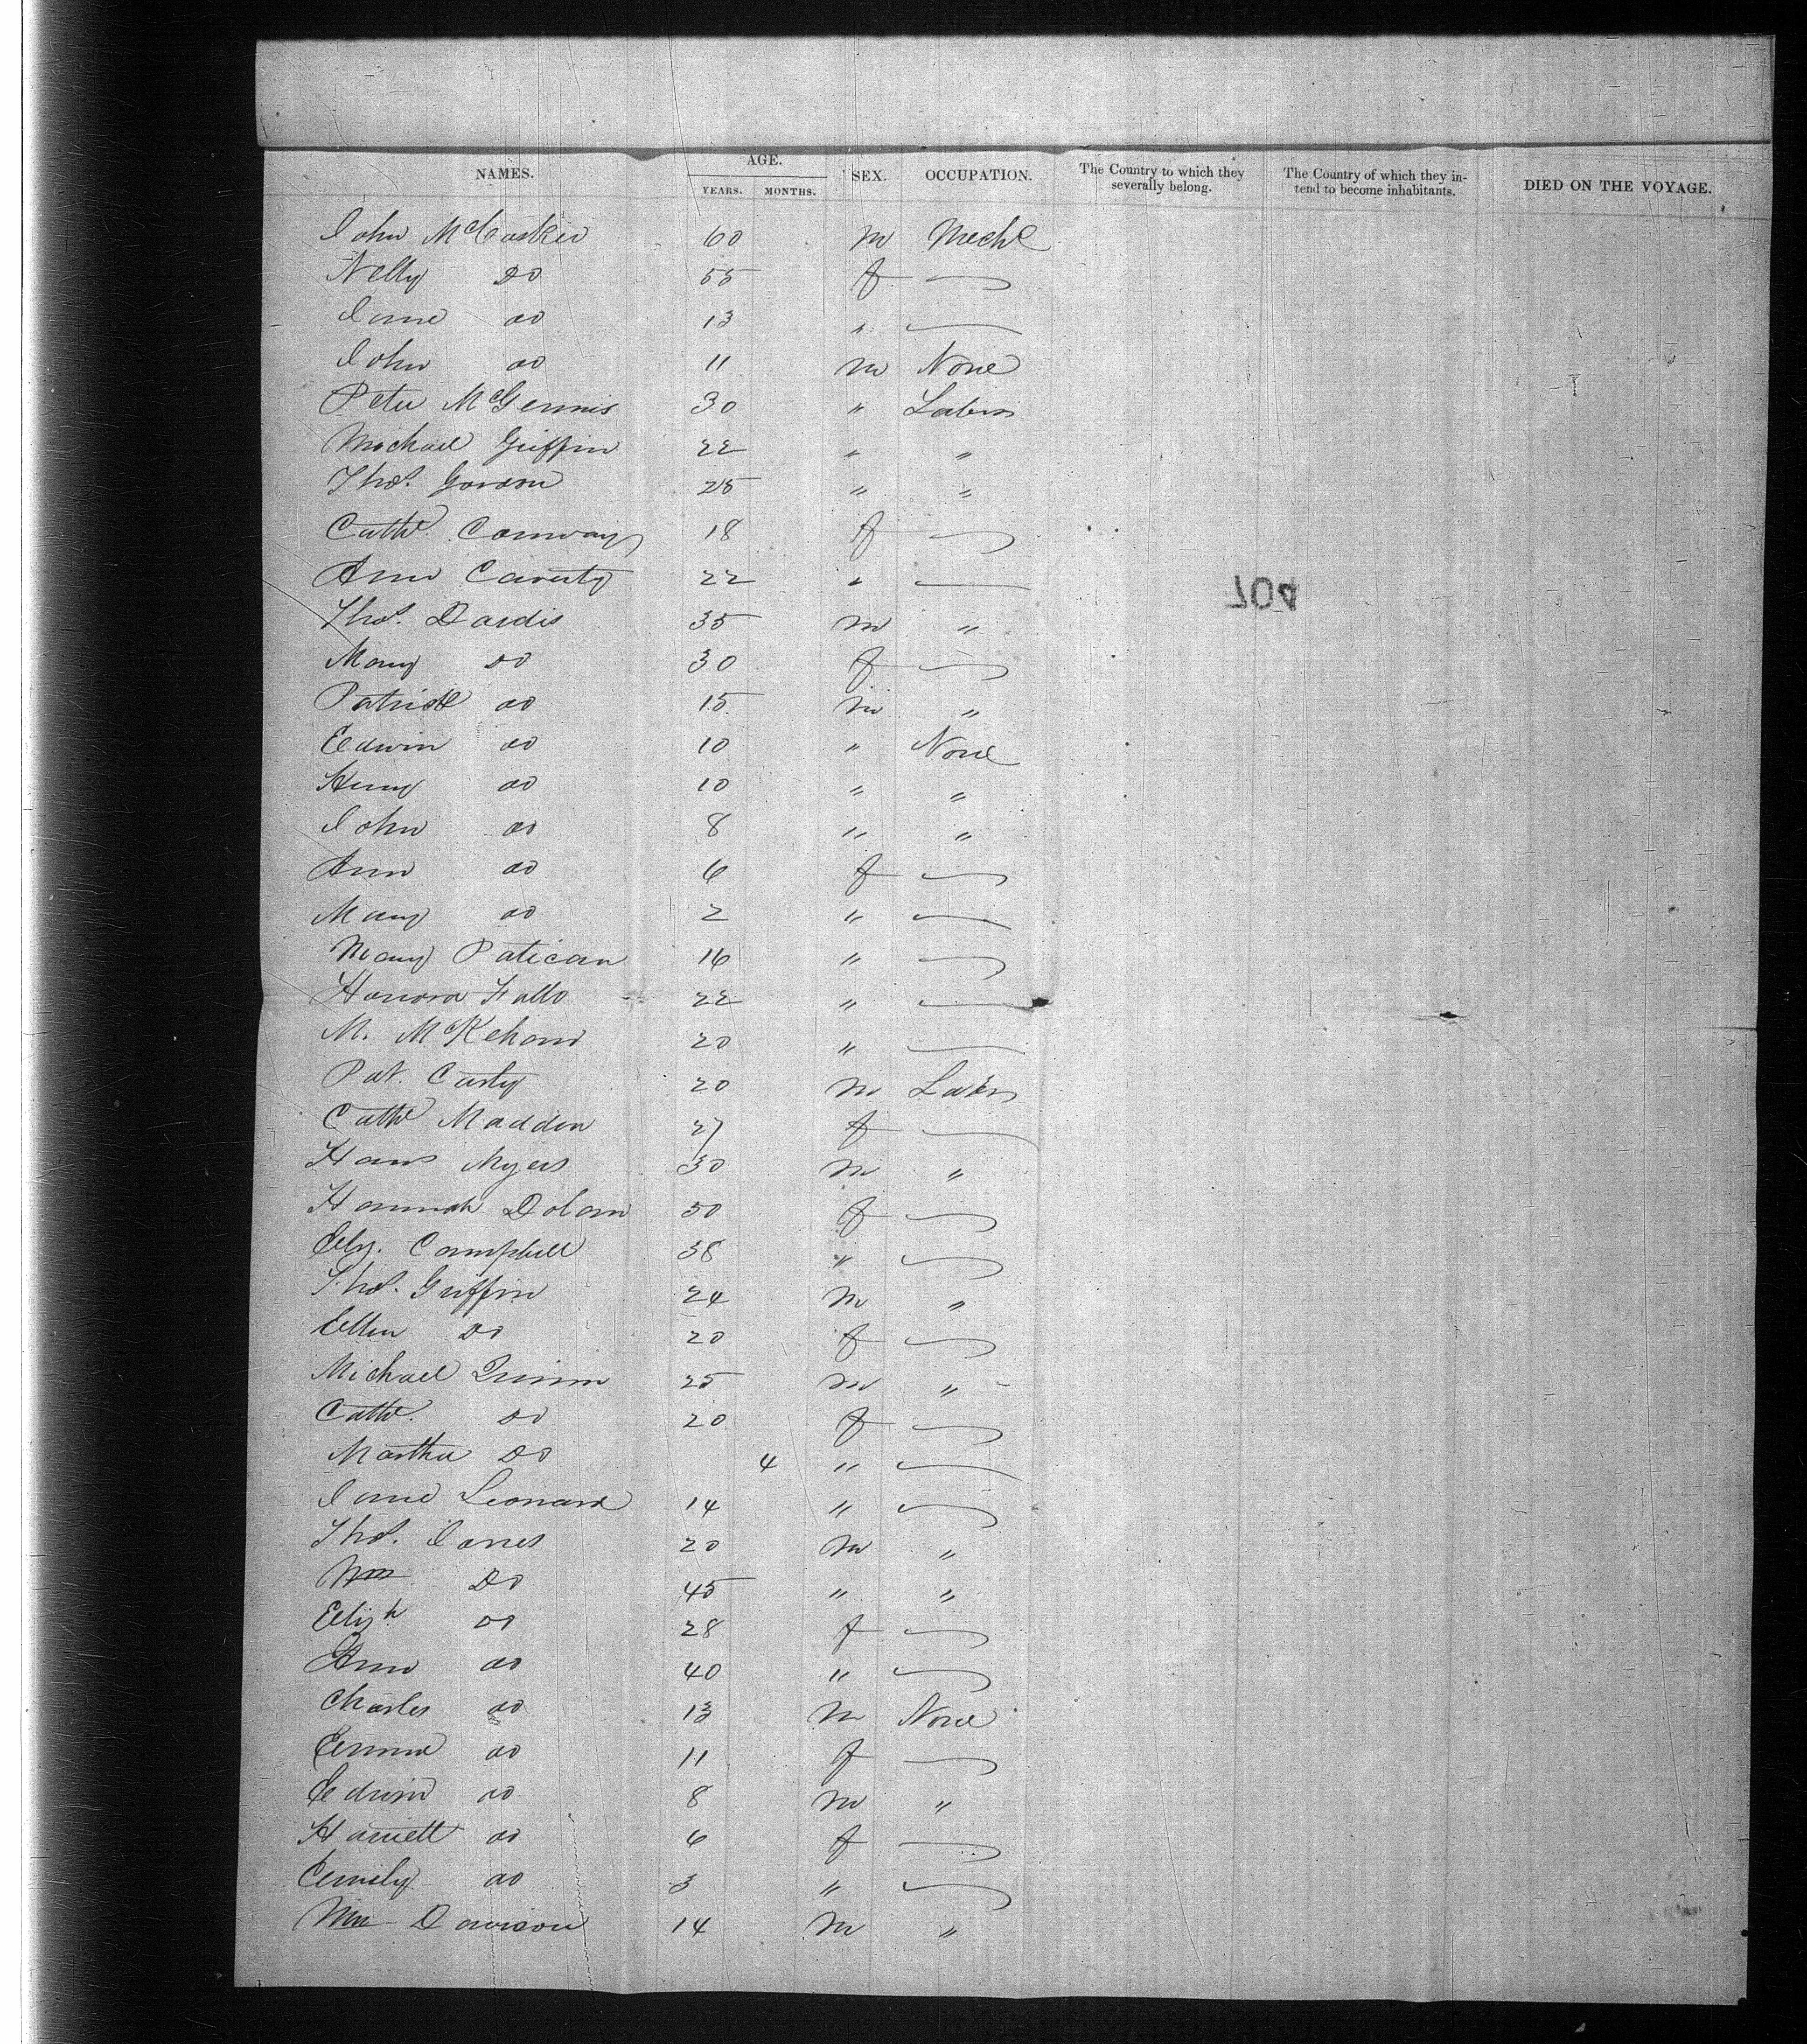 NAMES. AGE. YEARS. MONTHS. SEX. OCCUPATION. The Country to which they severally belong. The Country of which they intend to become inhabitants. DIED ON THE VOYAGE.
John McCosker 60 m Mechc
Nelly Do 55 f
Jane do 13 "
John do 11 m None
Peter McGennis 30 " Labrs
Michael Griffin 22 " "
Thos. Gordon 25 " "
Cathe Conway 18 f
Ann Caverty 22 "
704
Thos. Dardis 35 m "
Mary Do 30 f
Patrick do 15 m "
Edwin do 10 " None
Henry do 10 " "
John do 8 " "
Ann do 6 f
Mary do 2 "
Mary Patican 16 "
Honora Fallo 22 "
M. McKehand 20 "
Pat. Carty 20 m Labrs
Cathe Madden 27 f
Hans Myers 30 m "
Hannah Dolan 50 f
Eliz. Campbell 38 "
Thos. Griffin 24 m "
Ellen Do 20 f
Michael Quinn 25 m "
Cathe. Do 20 f
Martha Do 4 "
Jane Leonard 14 "
Thos. Jones 20 m "
Wm Do 45 " "
Elizh do 28 f
Ann do 40 "
Charles do 13 m None
Emma do 11 f
Edwin do 8 m "
Harriett do 6 f
Emily do 3 "
Wm Davison 14 m "